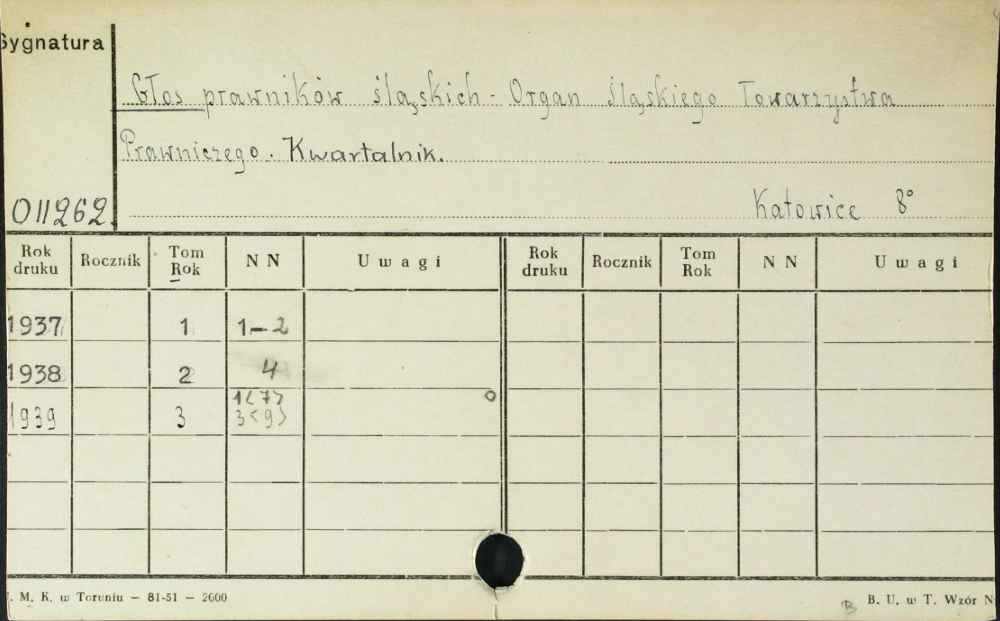 Sygnatura
Głos prawników śląskich - Organ Śląskiego Towarzystwa
Prawniczego. Kwartalnik.
011262.
Katowice 8°
Rok druku Rocznik Tom Rok N N Uwagi Rok druku Rocznik Tom Rok N N Uwagi
1937 1 1-2
1938 2 4
1939 3 1<7> 3<9>
. M. K. w Toruniu — 81-51 — 2600
B B. U. w T. Wzór N